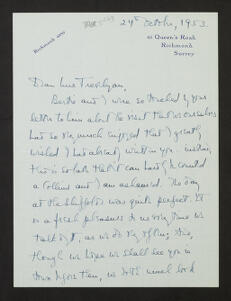 29th October, 1953.
Richmond
41 Queen's Road
Richmond
Surrey
Dear Miss Trevelyan,
Bertie and I were so touched by your
letter to him about the visit that we ourselves
had so very much enjoyed that I greatly
wished I had already written to you
this is so late that it can hardly be called
a Collins and I am ashamed. The day
at the Shiffolds was quite perfect. It
is a fresh pleasure to us every time we
talk of it, as we do very often. And,
though we hope we shall see you in
town again then, we both much look